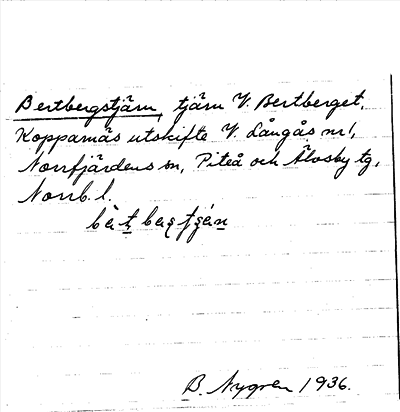 Bertbergstjärn, tjärn V. Bertberget,
Kopparnäs utskifte V. Långås nr 1,
Norrfjärdens sn, Piteå och Älvsby tg,
Norrb. l.
B. Nygren 1936.